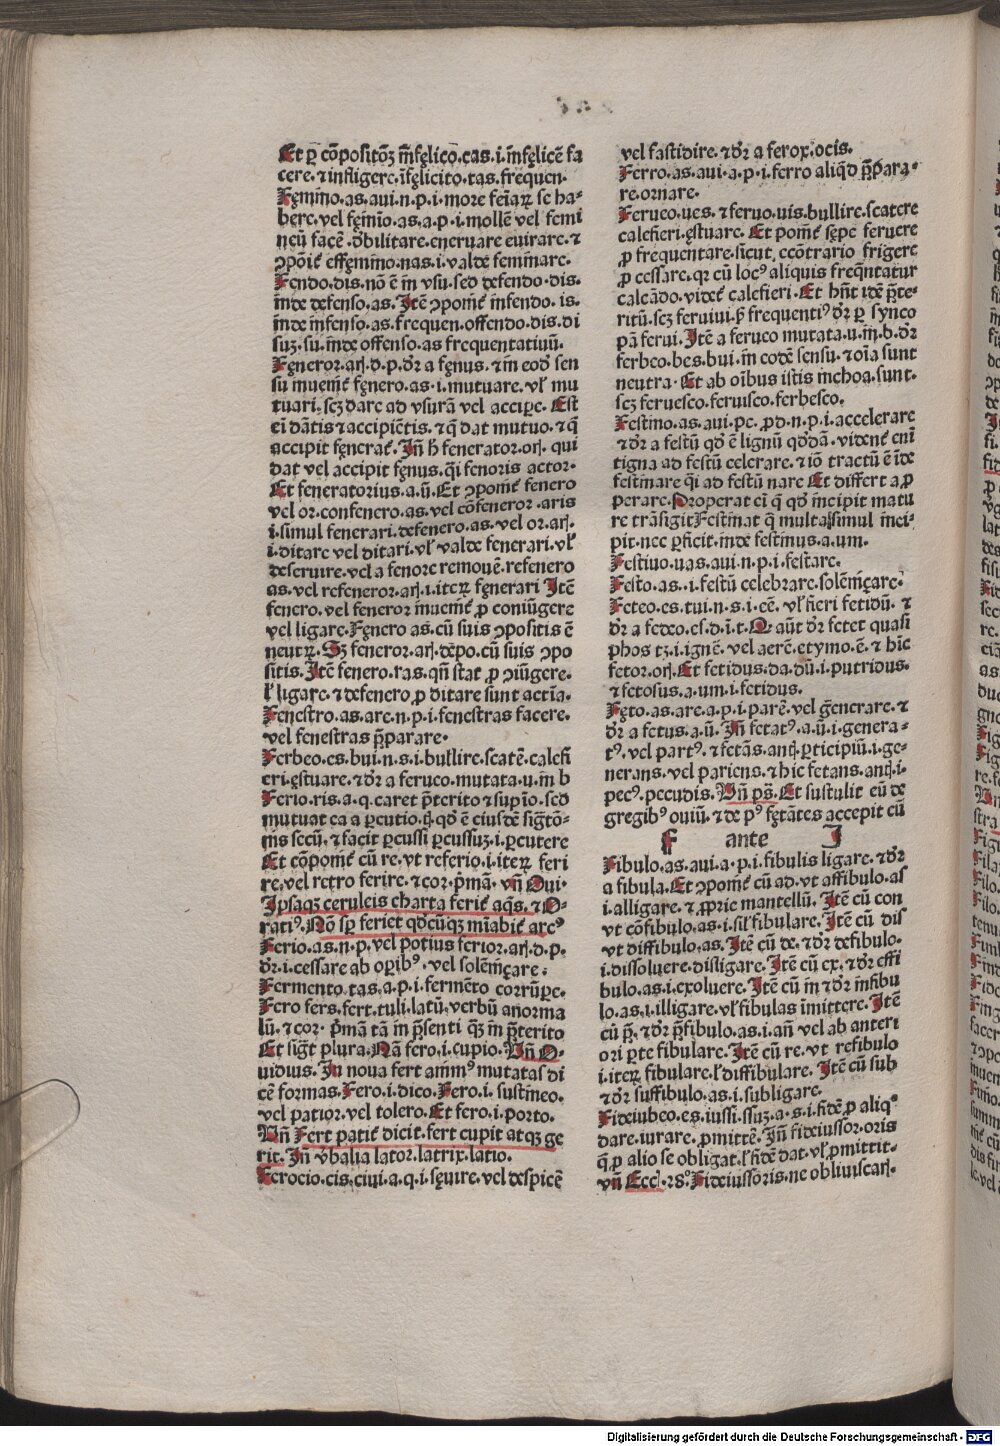 Et ꝑ cõpositõꝫ ĩfęlico.cas.i.infęlicẽ fa
cere.⁊ infligere.ĩfęlicito.tas.frequen.
Fęmino.as.aui.n.p.i.more feĩaꝝ se ha⸗
bere.vel fęmino.as.a.p.i.mollẽ vel femi
neũ facẽ.debilitare.eneruare euirare.⁊
ↄponit᷑ effęmino.nas.i.valde feminare.
Fendo.dis.nõ ẽ in vsu.sed defendo.dis.
inde defenso.as.Itẽ ↄponit᷑ infendo.is.
inde infenso.as.frequen.offendo.dis.di
suꝫ.su.inde offenso.as frequentatiuũ.
Fęneror.arꝭ.d.p.dr̃ a fęnus.⁊ in eodẽ sen
su inuenit᷑ fęnero.as.i.mutuare.vl̃ mu
tuari.scꝫ dare ad vsurã vel accipe.Est
ei dãtis ⁊ accipiẽtis.⁊ q̃ dat mutuo.⁊ q̃
accipit fęnerat᷑.Iñ h̃ fenerator.orꝭ.qui
dat vel accipit fęnus.q̃i fenoris actor.
Et feneratorius.a.ũ.Et ↄponit᷑ fenero
vel or.confenero.as.vel cõfeneror.aris
i.simul fenerari.defenero.as.vel or.arꝭ.
i.ditare vel ditari.vl̃ valde fenerari.vl̃
deseruire.vel a fenore remouẽ.refenero
as.vel refeneror.arꝭ.i.iteꝝ fęnerari Itẽ
fenero.vel feneror inuenit᷑ ꝓ coniũgere
vel ligare.Fęnero as.cũ suis ↄpositis ẽ
neutꝝ.Sꝫ feneror.arꝭ.depo.cũ suis ↄpo
sitis.Itẽ fenero.ras.qñ stat ꝓ ↄiũgere.
l̃ ligare.⁊ defenero ꝓ ditare sunt actĩa.
Fenestro.as.are.n.p.i.fenestras facere.
vel fenestras p̃parare.
Ferbeo.es.bui.n.s.i.bullire.scatẽ.calefi
eri.ęstuare.⁊ dr̃ a ferueo.mutata.u.in b
Ferio.ris.a.q.caret p̃terito ⁊ supĩo.sed
mutuat ea a ꝑcutio.q̃.qd̃ ẽ eiusdẽ sigtõ⸗
nis secũ.⁊ facit ꝑcussi ꝑcussuꝫ.i.ꝑcutere
Et cõponit᷑ cũ re.vt referio.i.iteꝝ feri
re.vel retro ferire.⁊ cor.p̃mã.vñ Oui.
Ipsaqꝫ ceruleis charta ferit᷑ aq̃s.⁊ O⸗
ratiꝰ.Nõ sp̃ feriet qd̃cũqꝫ minabit᷑ arcꝰ
Ferio.as.n.p.vel potius ferior.arꝭ.d.p.
dr̃.i.cessare ab opibꝰ.vel solẽniçare.
Fermento.tas.a.p.i.fermẽto corrũpe.
Fero fers.fert.tuli.latũ.verbũ anorma
lũ.⁊ cor.p̃mã tã in p̃senti qꝫ in p̃terito
Et sigt̃ plura.Nã fero.i.cupio.Vñ O⸗
uidius.In noua fert animꝰ mutatas di
cẽ formas.Fero.i.dico.Fero.i.sustineo.
vel patior.vel tolero.Et fero.i.porto.
Vñ Fert patit᷑ dicit.fert cupit atqꝫ ge
rit.Iñ v̾balia lator.latrix.latio.
Ferocio.cis.ciui.a.q.i.sęuire.vel despicẽ
vel fastidire.⁊ dr̃ a ferox.ocis.
Ferro.as.aui.a.p.i.ferro aliqd̃ p̃para⸗
re.ornare.
Ferueo.ues.⁊ feruo.uis.bullire.scatere
calefieri.ęstuare.Et ponit᷑ sępe feruere
ꝓ frequentare.sicut ecõtrario frigere
ꝓ cessare.qꝛ cũ locꝰ aliquis freq̃ntatur
calcãdo.videt᷑ calefieri.Et hñt idẽ p̃te⸗
ritũ.scꝫ feruiui.s̃ frequentiꝰ dr̃ ꝑ synco
pã ferui.Itẽ a ferueo mutata.u.in.b.dr̃
ferbeo.bes.bui.in eodẽ sensu.⁊ oĩa sunt
neutra.Et ab oĩbus istis inchoa.sunt.
scꝫ feruesco.feruisco.ferbesco.
Festino.as.aui.pe.ꝓd.n.p.i.accelerare
⁊ dr̃ a festũ qd̃ ẽ lignũ qd̃dã.vident᷑ eni
tigna ad festũ celerare.⁊ iõ tractũ ẽ ide
festinare q̃i ad festũ nare Et differt a ꝓ
perare.Properat ei q̃ qd̃ incipit matu
re trãsigit Festinat q̃ multa simul inci⸗
pit.nec ꝑficit.inde festinus.a.um.
Festiuo.uas.aui.n.p.i.festare.
Festo.as.i.festũ celebrare.solẽniçare.
Feteo.es.tui.n.s.i.eẽ.vl̃ fieri fetidũ.⁊
dr̃ a fedeo.es.d.ĩ.t.Q aũt dr̃ fetet quasi
phos tꝫ.i.ignẽ.vel aerẽ.etymo.ẽ.⁊ hĩc
fetor.orꝭ.Et fetidus.da.dũ.i.putridus.
⁊ fetosus.a.um.i.fetidus.
Fęto.as.are.a.p.i.parẽ.vel g̃enerare.⁊
dr̃ a fetus.a.ũ.Iñ fetatꝰ.a.ũ.i.genera⸗
tꝰ.vel partꝰ.⁊ fetãs.antꝭ.ꝑticipiũ.i.ge⸗
nerans.vel pariens.⁊ hic fetans.antꝭ.i.
pecꝰ.pecudis.Vñ ps̃.Et sustulit eũ de
gregibꝰ ouiũ.⁊ de pꝰ fętãtes accepit eũ
F ante I
Fibulo.as.aui.a.p.i.fibulis ligare.⁊ dr̃
a fibula.Et ↄponit᷑ cũ ad.vt affibulo.as
i.alligare.⁊ ꝓprie mantellũ.Itẽ cũ con
vt cõfibulo.as.i.sil̃ fibulare.Itẽ cũ dis
vt diffibulo.as.Itẽ cũ de.⁊ dr̃ defibulo.
i.dissoluere.disligare.Itẽ cũ ex.⁊ dr̃ effi
bulo.as.i.exoluere.Itẽ cũ in ⁊ dr̃ infibu
lo.as.i.illigare.vl̃ fibulas ĩmittere.Itẽ
cũ p̃.⁊ dr̃ p̃fibulo.as.i.añ vel ab anteri
ori pte fibulare.Itẽ cũ re.vt refibulo
i.iteꝝ fibulare.l̃ diffibulare.Itẽ cũ sub
⁊ dr̃ suffibulo.as.i.subligare.
Fideiubeo.es.iussi.ssuꝫ.a.s.i.fidẽ ꝓ aliqͦ
dare.iurare.ꝓmittẽ.Iñ fideiussor.oris
q̃ ꝓ alio se obligat.l̃ fidẽ dat.vl̃ ꝓmittit.
vñ Eccꝭ.28.Fideiussoris.ne obliuiscarꝭ.
Digitalisierung gefördert durch die Deutsche Forschungsgemeinschaft - DFG